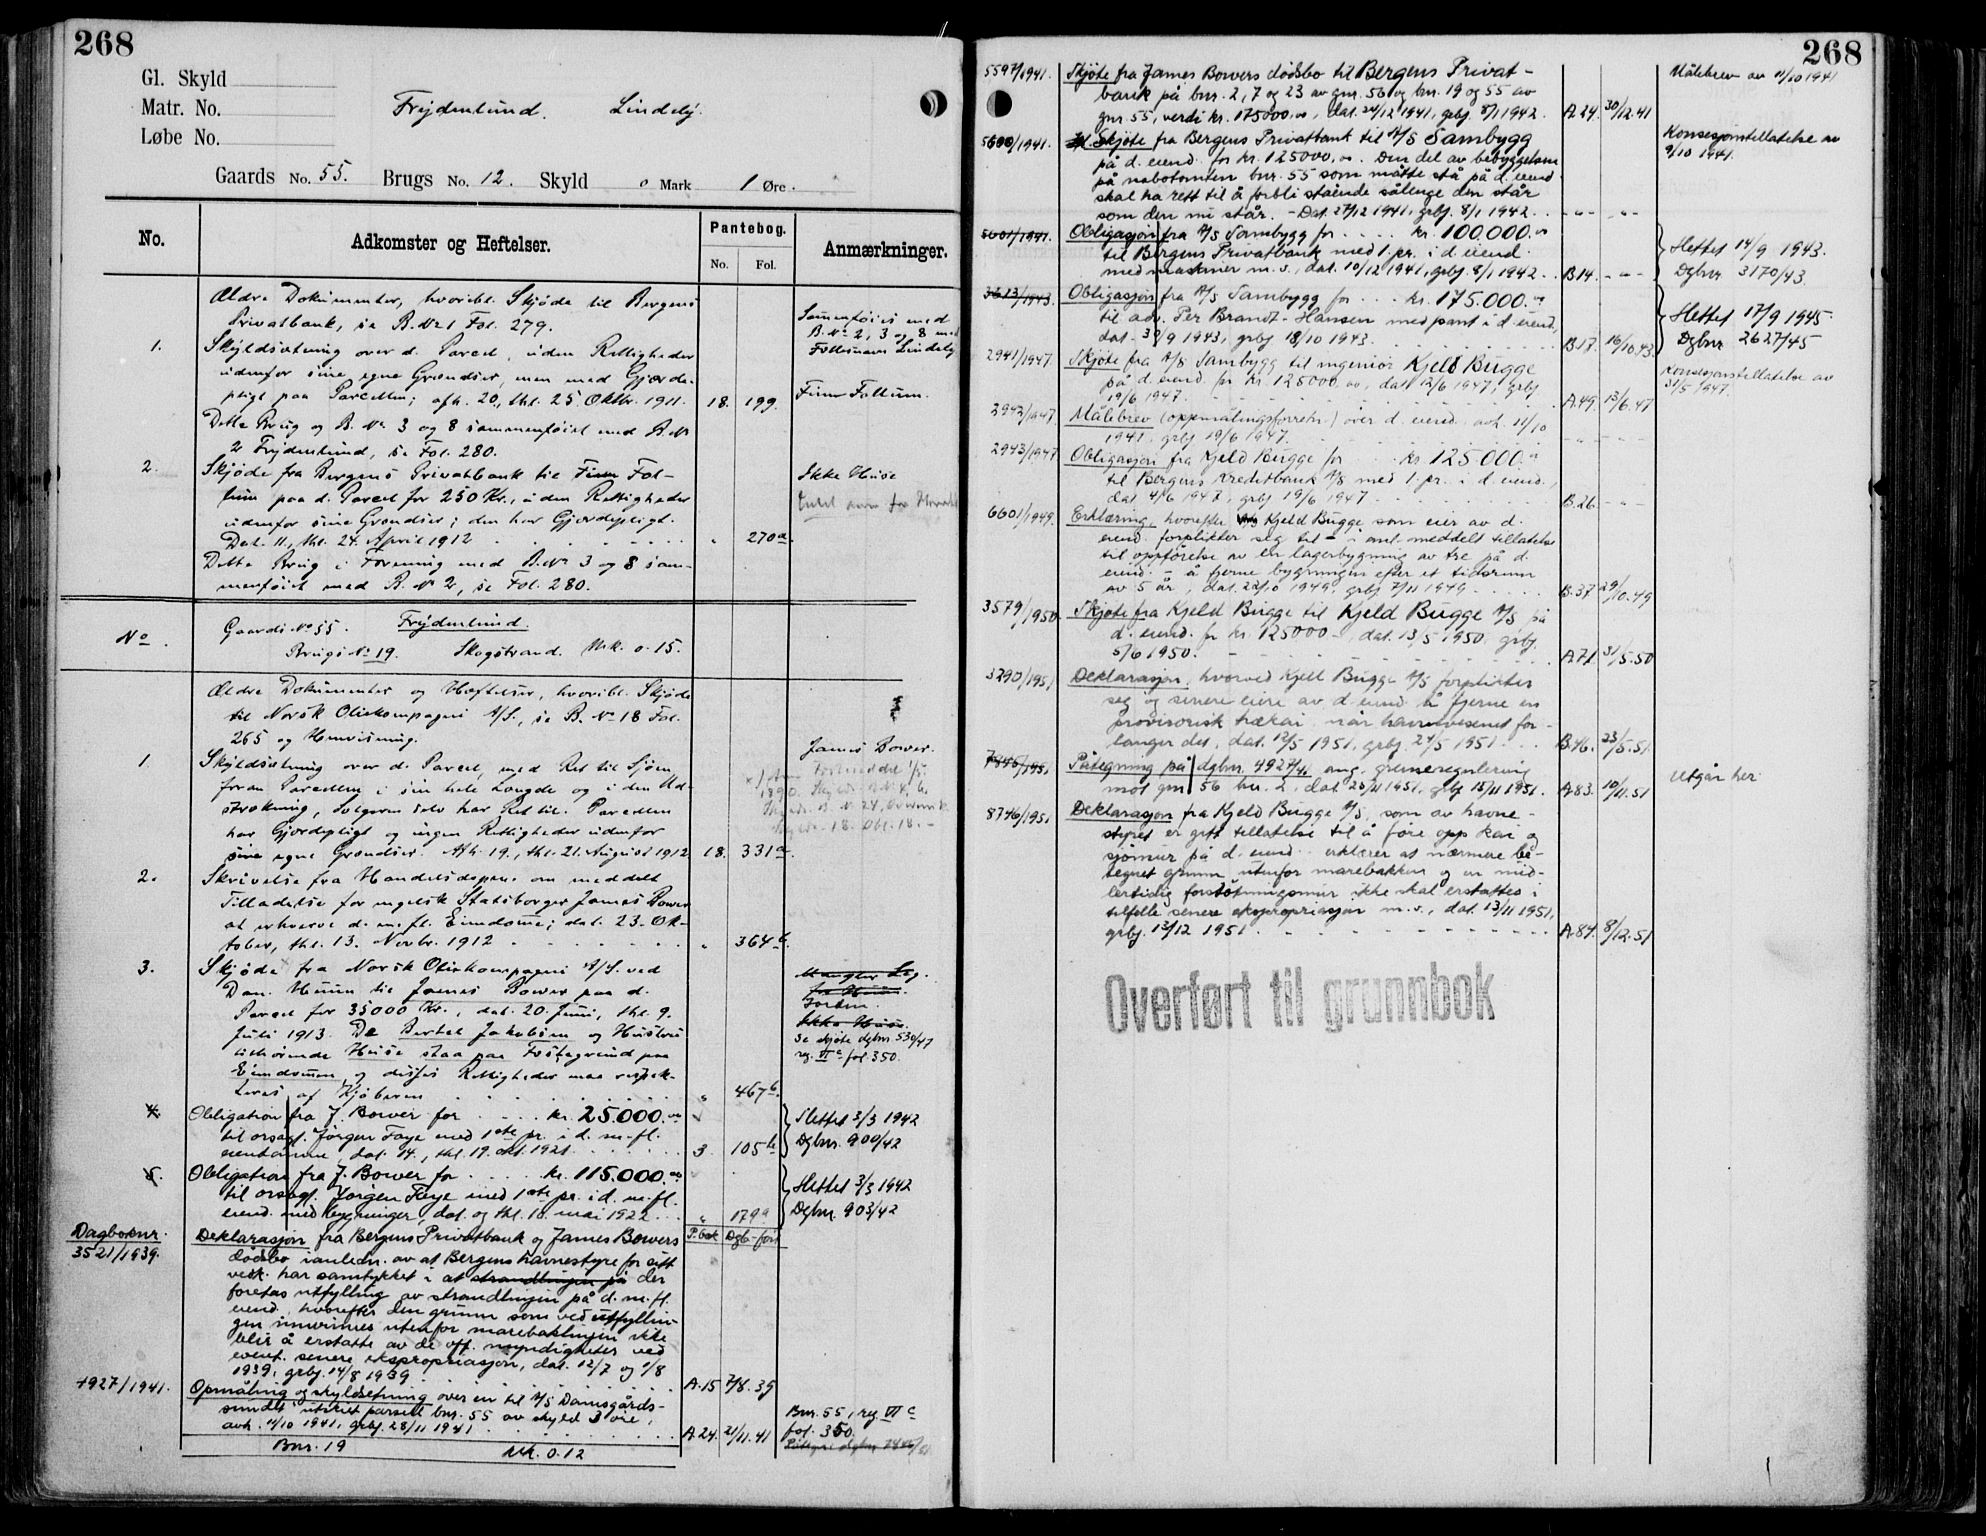 268
Gl. Skyld
Matr. No.
Løbe No.
Frydenlund. Lindeby.
Gaards No. 55. Brugs No. 12. Skyld 0 Mark 1 Øre.
No. Adkomster og Heftelser. Pantebog. Anmærkninger.
No. Fol.
Ældre Dokumenter, hvoribl. Skjøde til Bergens
Privatbank, se B. No 1 Fol. 279.
Sammenføiet med
B. No 2, 3 og 8 med
Fællesnavn Lindeby
1. Skyldsætning over d. Parcel, uden Rettigheder
udenfor sine egne Grændser, men med Gjærde-
pligt paa Parcellen; afh. 20., thl. 25. Oktbr. 1911. 18. 199.
Finn Follum.
Dette Brug og B. No 3 og 8 sammenføiet med B. No
2 Frydenlund, se Fol. 280.
2. Skjøde fra Bergens Privatbank til Finn Fol-
lum paa d. Parcel for 250 Kr., uden Rettigheder
udenfor sine Grændser; den har Gjerdepligt.
Dat. 11., thl. 24. April 1912 " 270a.
Ikke Huse
Dette Brug i Forening med B. No 3 og 8 sam-
menføiet med B. No 2, se Fol. 280.
No. Gaards No 55. Frydenlund.
Brugs No 19. Skogstrand. Mrk. 0.15.
Ældre Dokumenter og Hæftelser, hvoribl. Skjøde
til Norsk Oliekompagni A/S., se B. No 18 Fol.
265 og Henvisning.
James Bower.
1 Skyldsætning over d. Parcel, med Ret til Sjøen
foran Parcellen i sin hele Længde og i den Ud-
strækning, Sælgeren selv har Ret til. Parcellen
har Gjerdepligt og ingen Rettigheder udenfor
sine egne Grændser. Afh. 19., thl. 21. August 1912 18. 331a.
2. Skrivelse fra Handelsdepm. om meddelt
Tilladelse for engelsk Statsborger James Bower
at erhverve d. m. fl. Eiendomme; dat. 23. Ok-
tober, thl. 13. Novbr. 1912 " 364b.
3. Skjøde fra Norsk Oliekompagni A/S. ved
Dan. Huun til James Bower paa d.
Parcel for 35000 Kr., dat. 20. Juni, thl. 9.
Juli 1913. De Bertel Jakobsen og Hustru
tilhørende Huse staa paa Fæstegrund paa
Eiendommen og disses Rettigheder maa respek-
teres af Kjøberen " 467b.
Mangler Leg.
for Huse.
Jorden.
Ikke Huse.
Se skjøte dgbnr. 530/47
reg. VI c fol 350.
4. Obligation fra J. Bower for kr. 25000.00
til orsagf. Jörgen Faye med 1ste pr. i d. m. fl.
eiendomme, dat. 14., thl. 19. okt. 1921 3. 105b
Slettet 3/3 1942
Dgbnr. 900/42
5. Obligation fra J. Bower for kr. 115000.00
til orsagf. Jörgen Faye med 1ste pr. i d. m. fl.
eiend. med bygninger, dat. og thl. 18. mai 1922 " 179a
Slettet 3/3 1942
Dgbnr. 903/42
Dagboknr. P. bok Dgb-ført
3521/1939. Deklarasjon fra Bergens Privatbank og James Bowers
dödsbo i anledn. av at Bergens havnestyre for sitt
vedk. har samtykket i at strandlinjen på der
foretas utfylling av strandlinjen på d. m. fl.
eiend. hvorefter den grunn som ved utfyllin-
gen innvinnes utenfor marebaklinjen ikke
blir å erstatte av de off. myndigheter ved
event. senere ekspropriasjon, dat. 12/7 og 1/8
1939, grbj. 14/8 1939 A.15 7/8.39
4927/1941. Opmåling og skyldsetning over en til A/S Damsgårds-
sundet utskilt parsell bnr. 55 av skyld 3 øre,
avh. 11/10 1941, grbj. 28/11 1941 A.24. 21/11.41
Bnr. 55, reg VI c
fol. 350.
Bnr. 19 Mk. 0.12
268
5597/1941. Skjöte fra James Bowers dödsbo til Bergens Privat-
bank på bnr. 2, 7 og 23 av gnr. 56 og bnr. 19 og 55 av
gnr. 55, verdi kr. 175000,00, dat. 24/12 1941, grbj. 8/1 1942. A.24. 30/12.41
Målebrev av 11/10 1941
5600/1941. Skjöte fra Bergens Privatbank til A/S Sambygg
på d. eiend. for kr. 125000,00. Den del av bebyggelsen
på nabotomten bnr. 55 som måtte stå på d. eiend.
skal ha rett til å forbli stående sålenge den står
som den nu står. - Dat. 27/12 1941, grbj. 8/1 1942. - " - - " -
Konsesjonstillatelse av
9/10 1941.
5601/1941. Obligasjon fra A/S Sambygg for kr. 100.000.00
til Bergens Privatbank med 1. pr. i d. eiend.
med maskiner m. v., dat. 10/12 1941, grbj. 8/1 1942. B.14. - " -
Slettet 14/9 1943.
Dgbnr 3170/43.
3613/1943. Obligasjon fra A/S Sambygg for kr. 175.000.00
til adv. Per Brandt-Hansen med pant i d. eiend.,
dat. 30/9 1943, grbj 18/10 1943. B.17. 16/10.43
Slettet 17/9 1945
Dgbnr. 2627/45
2941/1947. Skjöte fra A/S Sambygg til ingeniör Kjeld Bugge
på d. eiend. for kr. 125000.00, dat. 12/6 1947, grbj.
19/6 1947. A.49. 13/6.47
Konsesjonstillatelse av
31/5 1947.
2942/1947 Målebrev (oppmålingsforretn.) over d. eiend. avh. 11/10
1941, grbj 19/6 1947.
2943/1947 Obligasjon fra Kjeld Bugge for kr. 125000.00
til Bergens Kreditbank A/S med 1. pr. i d. eiend.,
dat. 4/6 1947, grbj 19/6 1947 B.26. - " -
6601/1949. Erklæring, hvorefter Kjeld Bugge som eier av d.
eiend. forplikter seg til - i anl. meddelt tillatelse
til oppförelse av en lagerbygning av tre på d.
eiend. - å fjerne bygningen efter et tidsrum
av 5 år, dat. 22/10 1949, grbj 7/11 1949 B.37 29/10.49
3579/1950. Skjöte fra Kjeld Bugge til Kjeld Bugge A/S på
d. eiend. for kr. 125000.-, dat. 13/5 1950, grbj.
5/6 1950. A.71. 31/5.50
3290/1951 Deklarasjon, hvorved Kjell Bugge A/S forplikter
seg og senere eiere av d. eiend. å fjerne en
provisorisk trækai når havnevesenet for-
langer det, dat. 12/5 1951, grbj. 24/5 1951. B.46. 23/5.51.
7846/1951 Påtegning på dgbnr. 4927/41 ang. grenseregulering
mot gnr 56 bnr. 2, dat. 20/11 1951, grbj 15/11 1951. A.83. 10/11.51
utgår her
8746/1951 Deklarasjon fra Kjeld Bugge A/S, som av havne-
styret er gitt tillatelse til å före opp kai og
sjömur på d. eiend. - erklærer at nærmere be-
tegnet grunn utenfor marebakken og en mid-
lertidig forstötningsmur ikke skal erstattes i
tilfelle senere ekspropriasjon m. v., dat. 13/11 1951,
grbj. 13/12 1951. A.84. 8/12.51
Overført til grunnbok